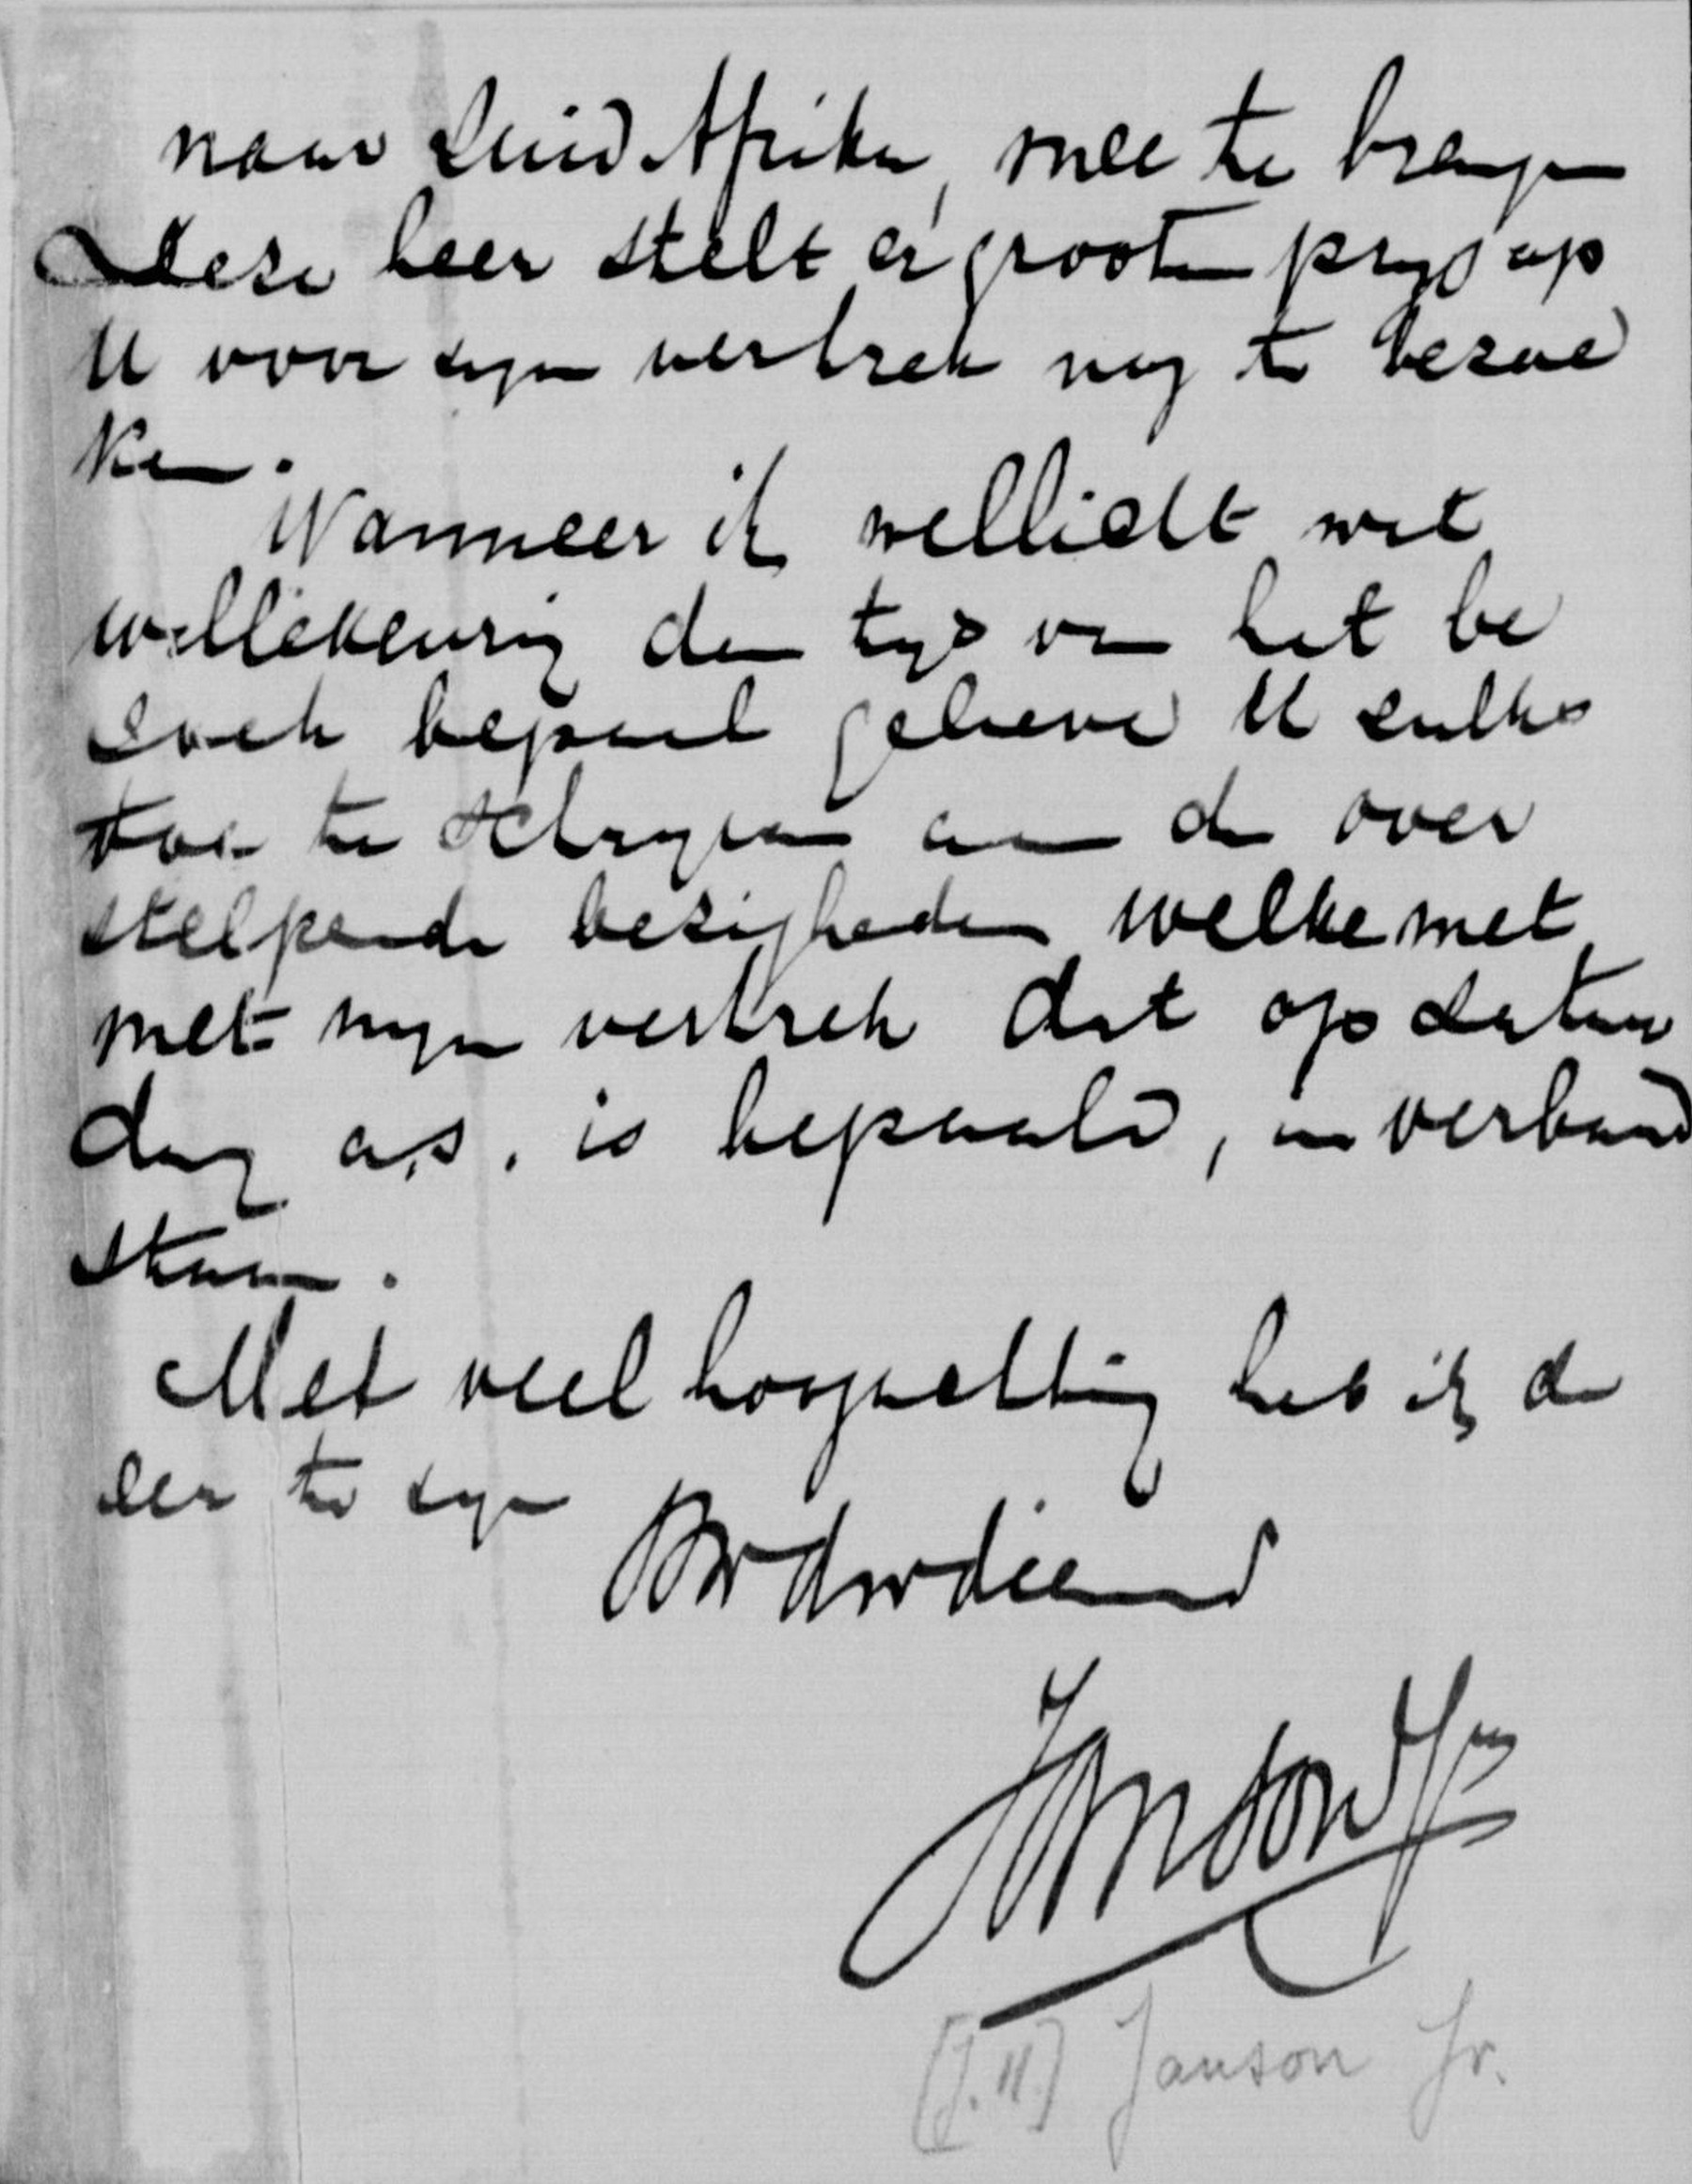 naar Zuid Afrika, mee te brengen
Deze heer stelt er grooten prijs op
U voor zijn vertrek nog te bezoe
ken.
Wanneer ik wellicht wat
willekeurig den tijd van het be
zoek bepaal gelieve U zulks
toe te schrijven aan de over
stelpende bezigheden welke met
met mijn vertrek dat op Zatur
dag a.s. is bepaald, in verband
staan.
Met veel hoogachting heb ik de
eer te zijn
Uw dw dienaar
Janson Jr
(J. H) Janson Jr.